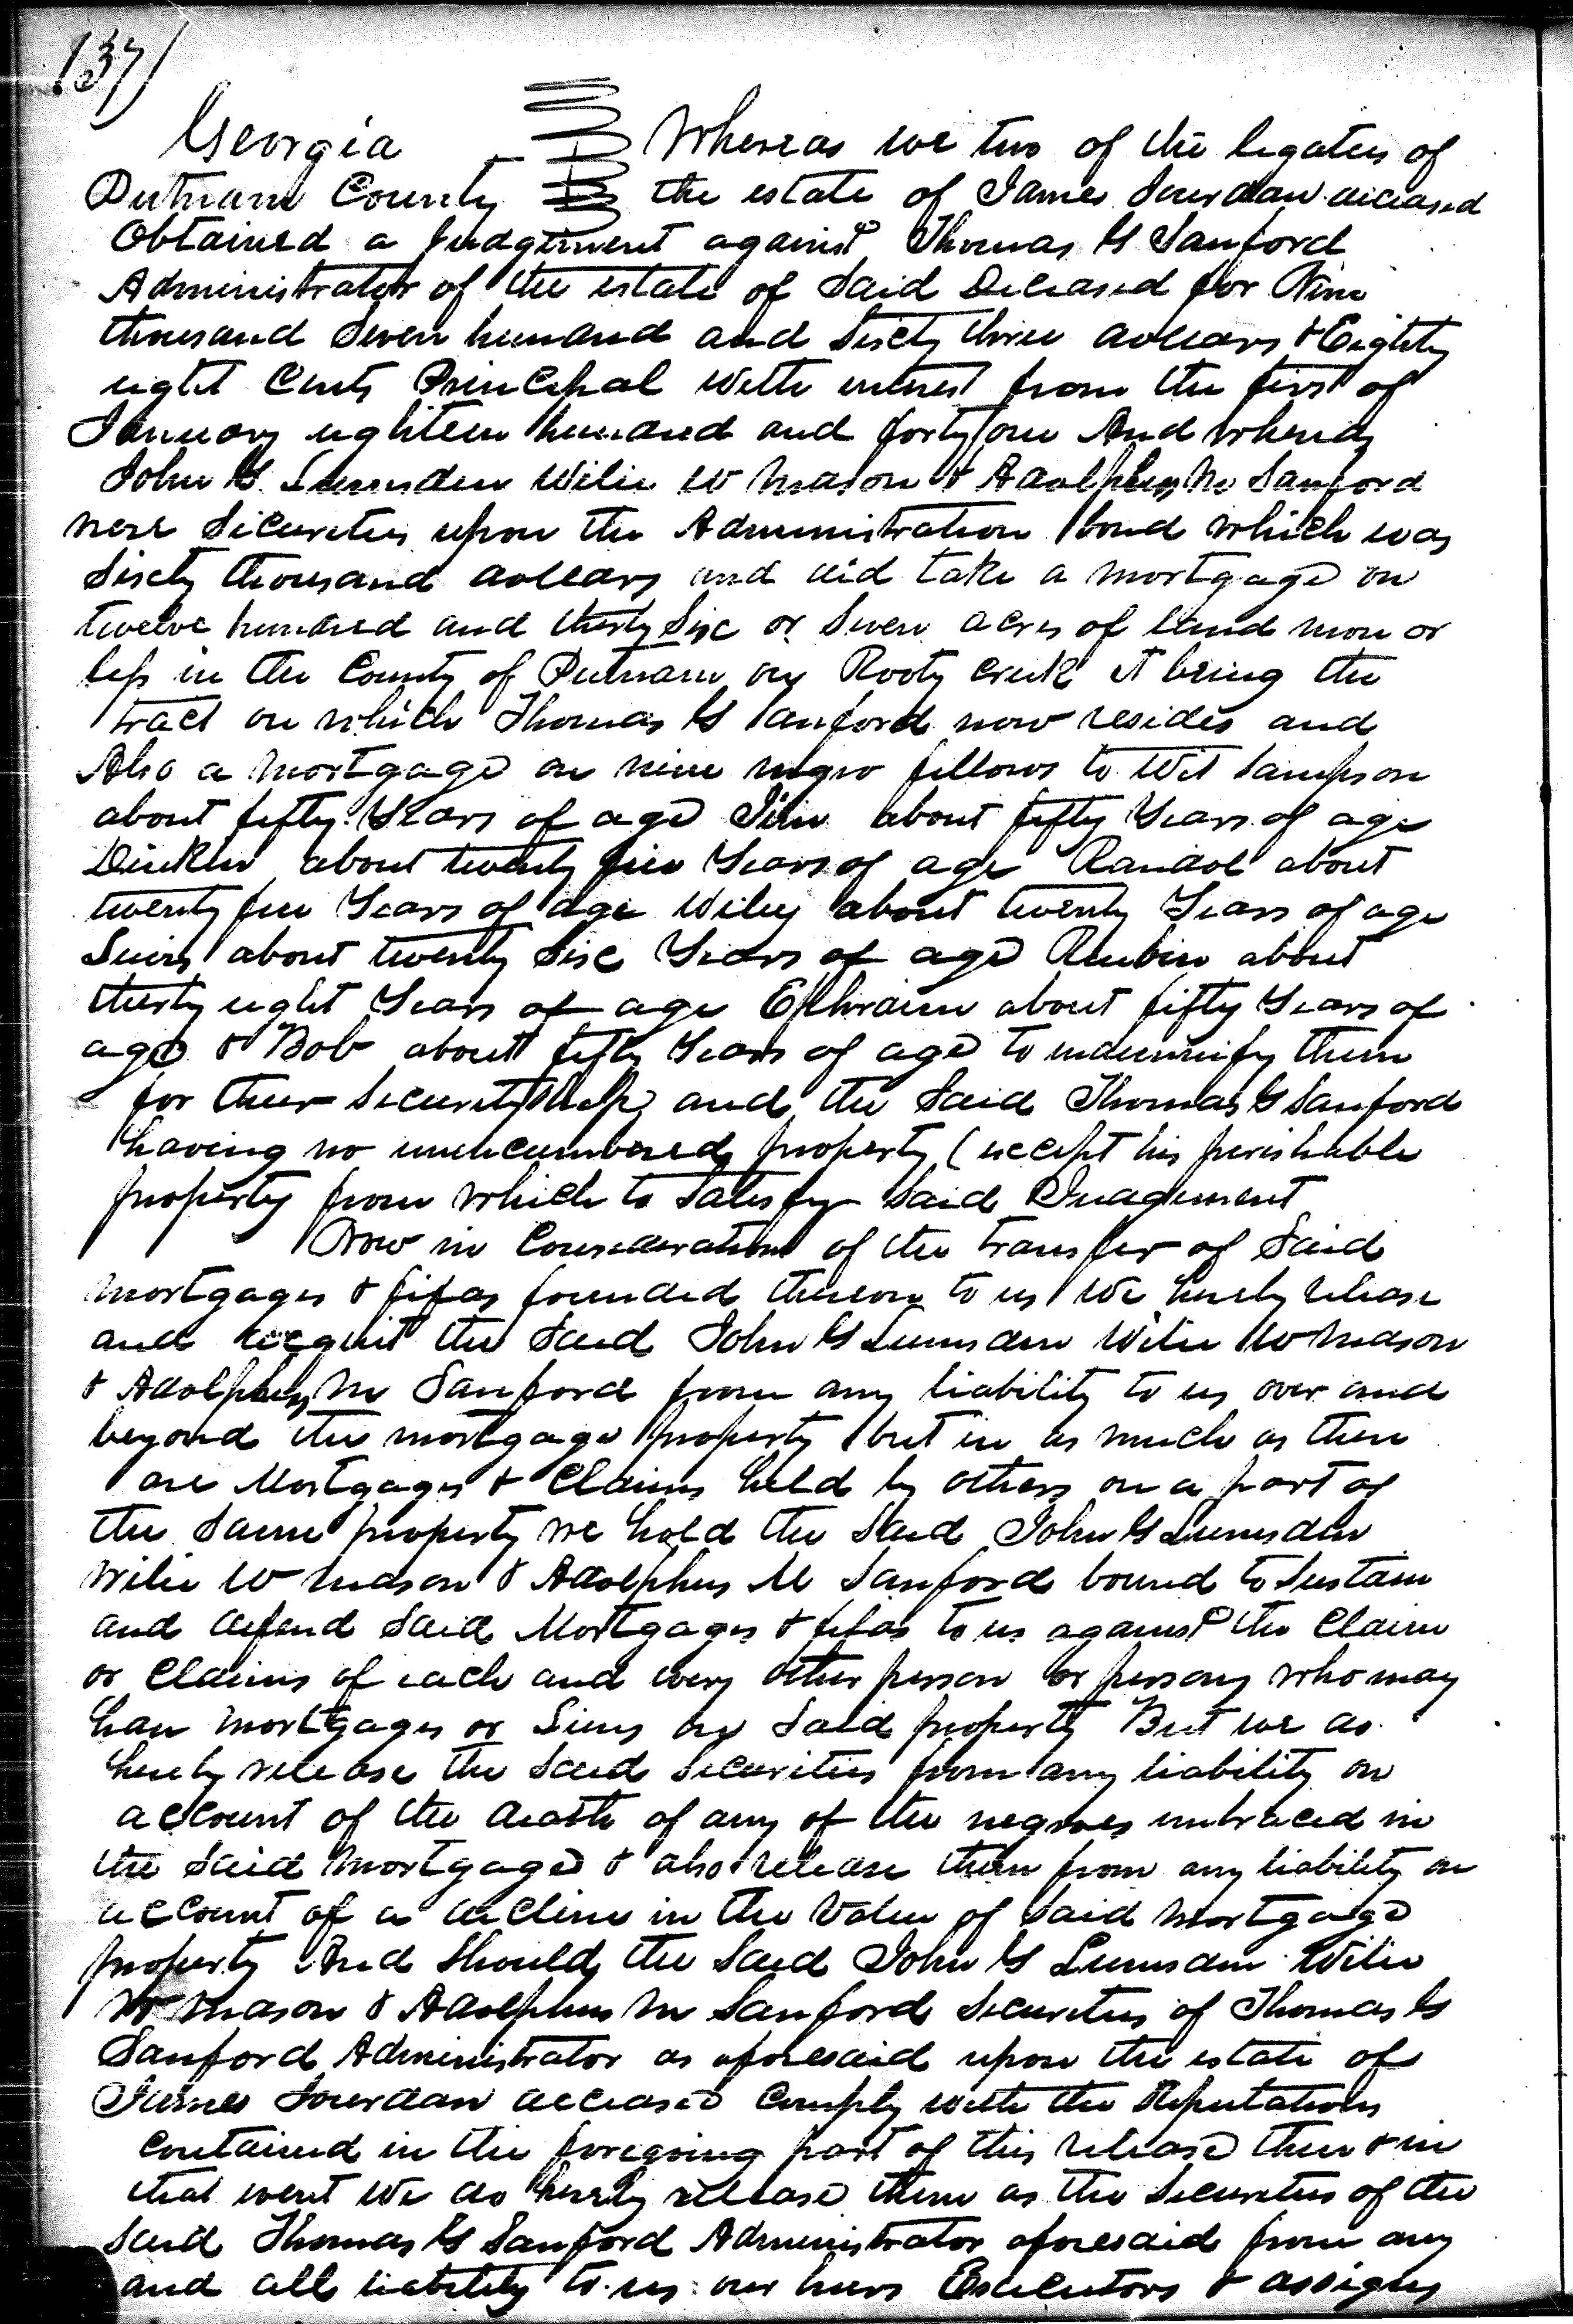 137
Georgia Whereas we two of the legatees of
Putnam County the estate of James Jourdan deceased
Obtained a Judgement against Thomas G Sanford
Administrator of the estate of Said Deceased for Nine
thousand Seven hundred and Sixty three dollars & Eighty
eight Cents Principal with interest from the first of
January eighteen hundred and forty one And whereas
John G. Lumsden Wilie W Mason & Adolphus M Sanford
were Securities upon the Administration bond which was
Sixty thousand dollars and did take a mortgage on
twelve hundred and thirty Six or Seven acres of land more or
less in the County of Putnam on Rooty creek it being the
tract on which Thomas G Sanford now resides and
Also a mortgage on nine negro fellows to Wit Sampson
about fifty Years of age Jim about fifty Years of age
about twenty five Years of age Randol about
twenty five Years of age Wiley about twenty Years of age
about twenty Six Years of age Reubin about
thirty eight Years of age Ephraim about fifty Years of
age & Bob about fifty Years of age to indemnify them
for their Securityship and the Said Thomas G Sanford
having no unencumbered property (except his perishable
property from which to Satisfy Said Judgement
Now in Consideration of the transfer of Said
mortgages & fifas founded thereon to us We hereby release
and acquit the Said John G Lumsden Wilie W Mason
& Adolphus M Sanford from any liability to us over and
beyond the mortgage property but in as much as there
are Mortgages & Claims held by others on a part of
the Same property we hold the Said John G Lumsden
Wilie W Mason & Adolphus M Sanford bound to Sustain
and defend Said Mortgages & fifas to us against the Claim
or Claims of each and every other person or persons who may
have mortgages or Liens on Said property But we do
hereby release the Said Securities from any liability on
account of the death of any of the negroes embraced in
the Said mortgage & also release them from any liability on
account of a decline in the Value of Said mortgage
property And Should the Said John G Lumsden Wilie
W Mason & Adolphus M Sanford Securities of Thomas G
Sanford Administrator as aforesaid upon the estate of
James Jourdan deceased Comply with the Stipulations
Contained in the foregoing part of this release then & in
that event We do hereby release them as the Securities of the
Said Thomas G Sanford Administrator aforesaid from any
and all liability to us our heirs Executors & assigns